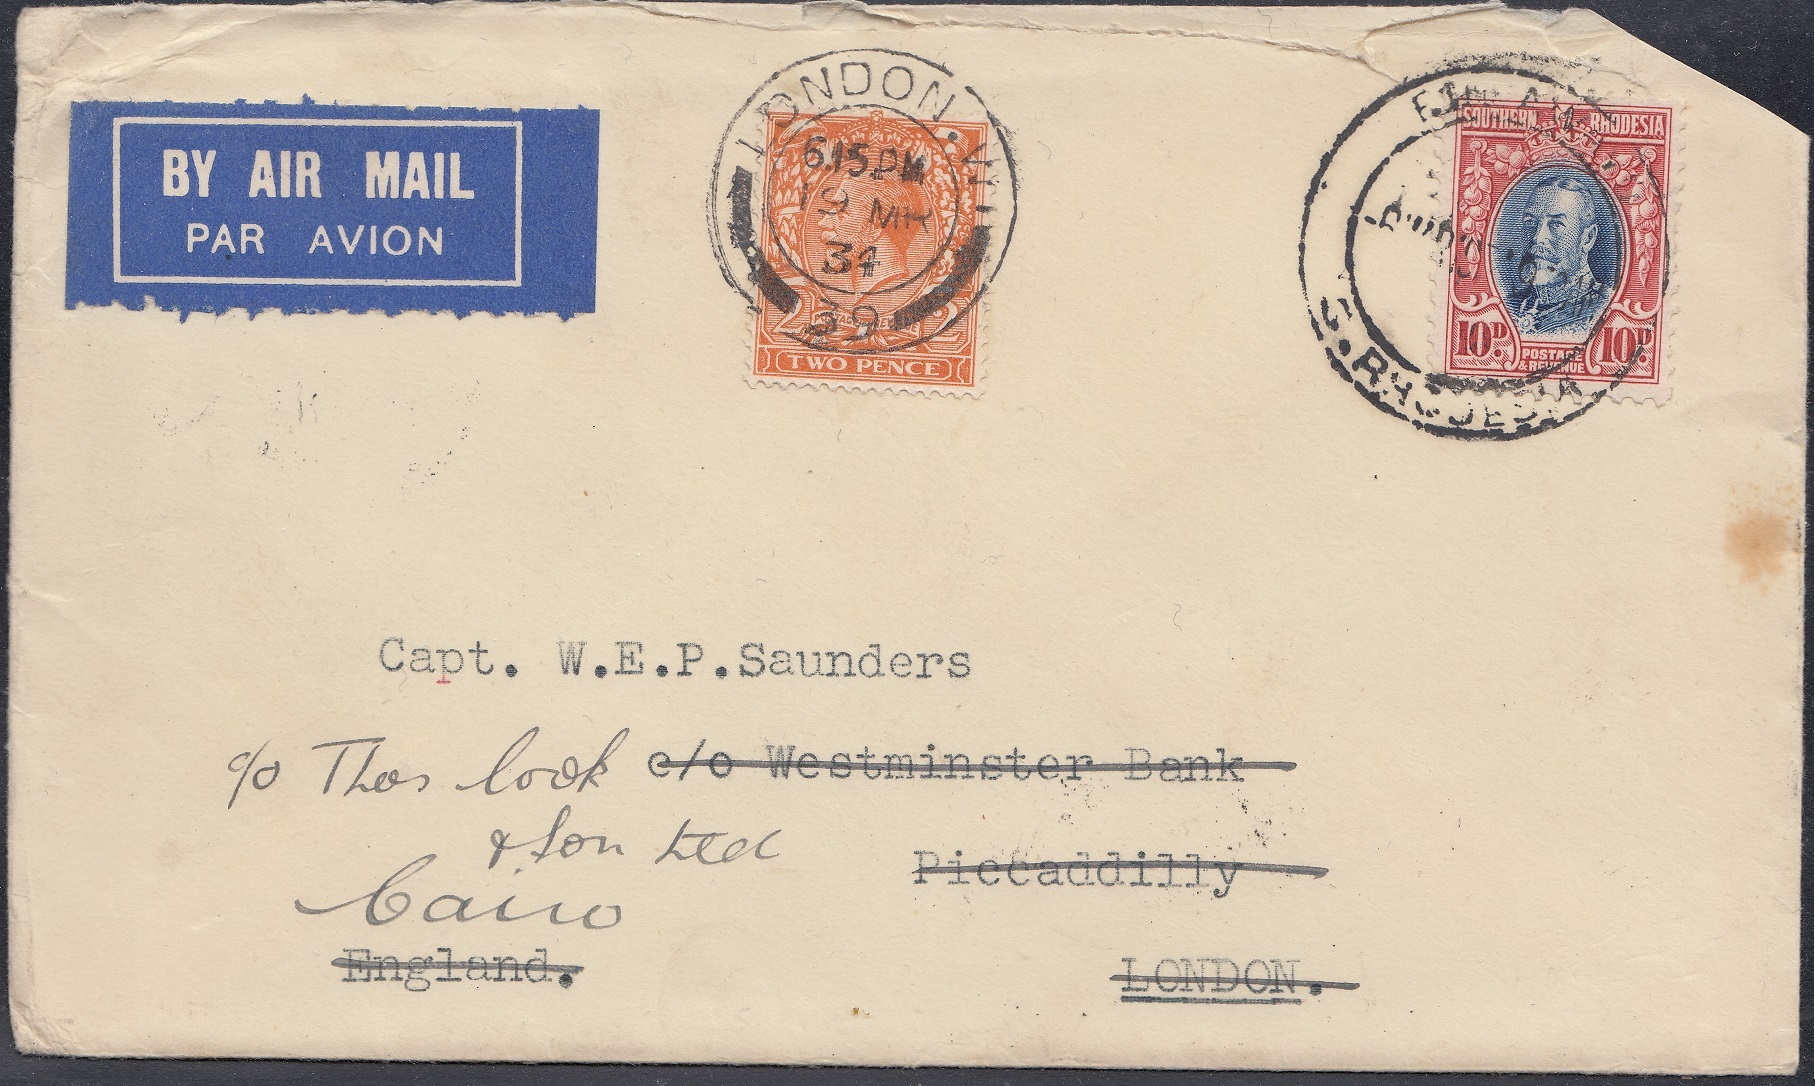 BY AIR MAIL
PAR AVION
LONDON
6.15 PM
19 MR
34
39
2 POSTAGE REVENUE 2
TWO PENCE
SOUTHERN RHODESIA
10D. 10D.
POSTAGE
& REVENUE
S. RHODESIA
Capt. W.E.P.Saunders
c/o Thos Cook c/o Westminster Bank
& Son Ltd Piccaddilly
Cairo
England. LONDON.